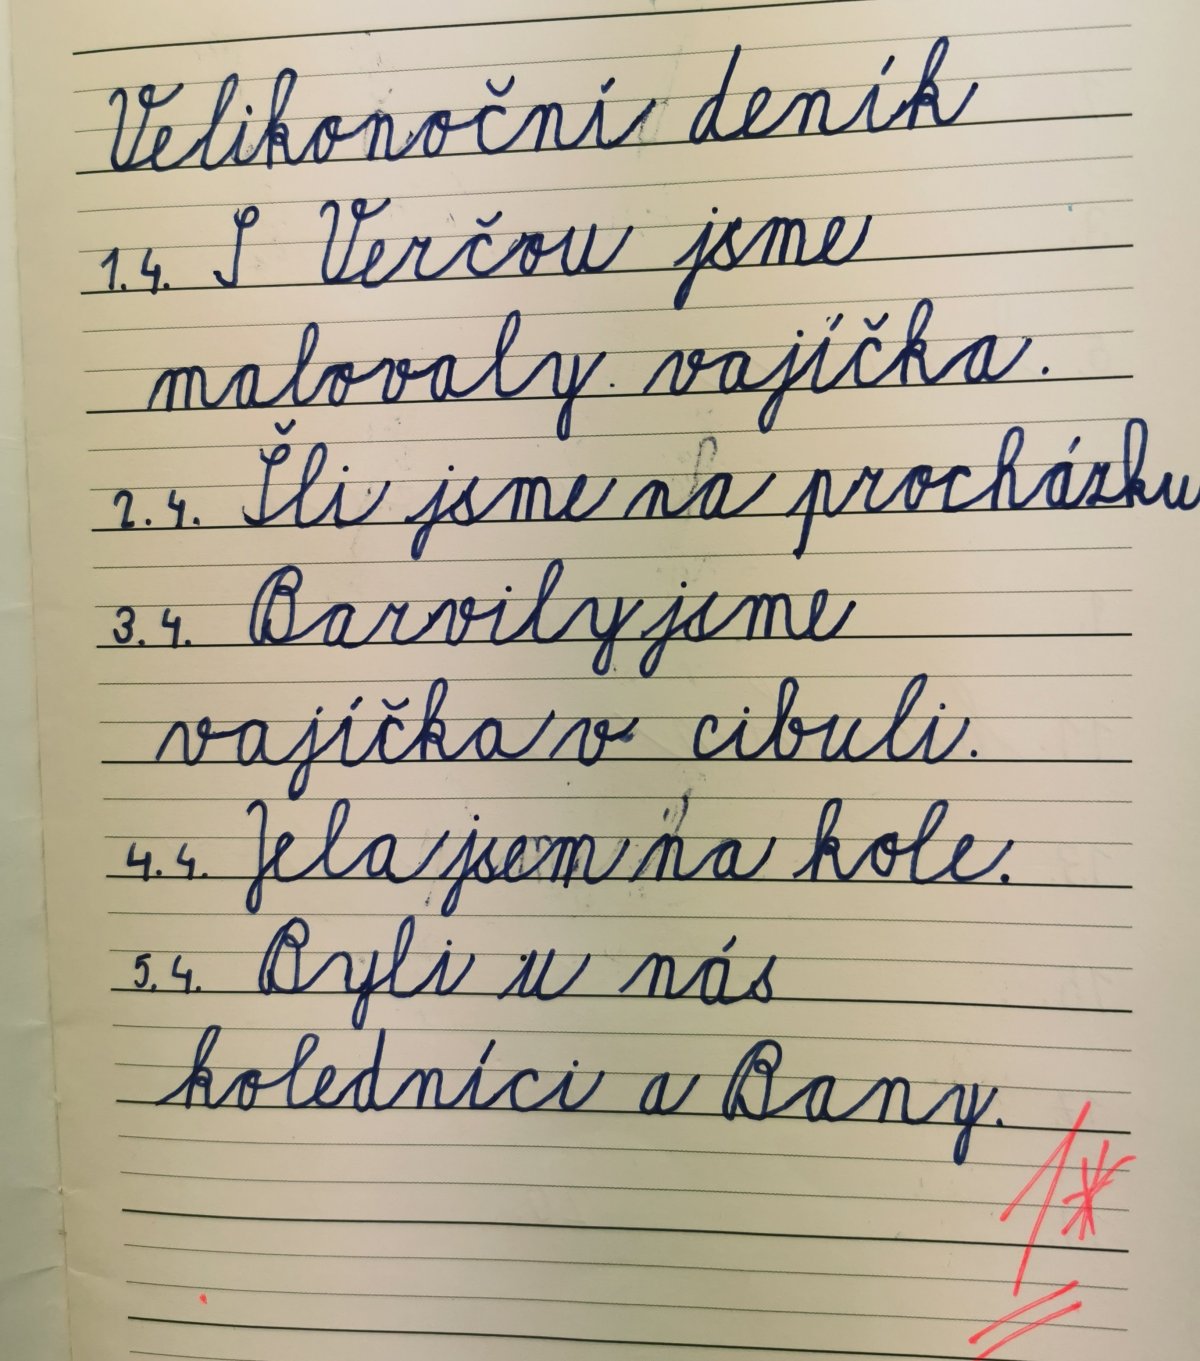 Velikonoční deník
1.4. S Verčou jsme
malovaly vajíčka.
2.4. Šli jsme na procházku
3.4. Barvily jsme
vajíčka v cibuli.
4.4. Jela jsem na kole.
5.4. Byli u nás
koledníci a Bany.
1*